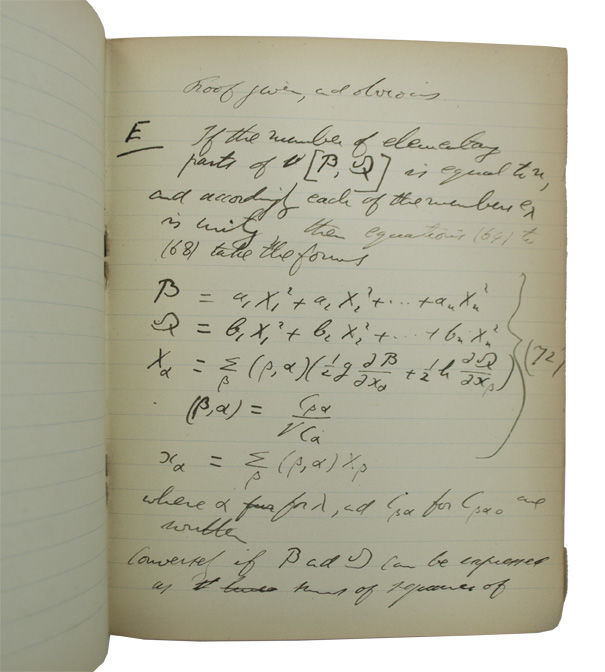 Proof given, and obvious
E If the number of elementary
parts of [P, Q] is equal to n,
and accordingly each of the numbers e_λ
is unity, then equations (64) to
(68) take the forms
P = a₁X₁² + a₂X₂² + ... + aₙXₙ²
Q = b₁X₁² + b₂X₂² + ... + bₙXₙ²
X_α = Σ_β (β,α)(½g ∂P/∂x_β + ½h ∂Q/∂x_β) (72)
(β,α) = C_βα/√C_α
x_α = Σ_β (β,α)X_β
where α for λ, and C_βα for C_βα0 are
written
Conversely if P and Q can be expressed
as sums of squares of